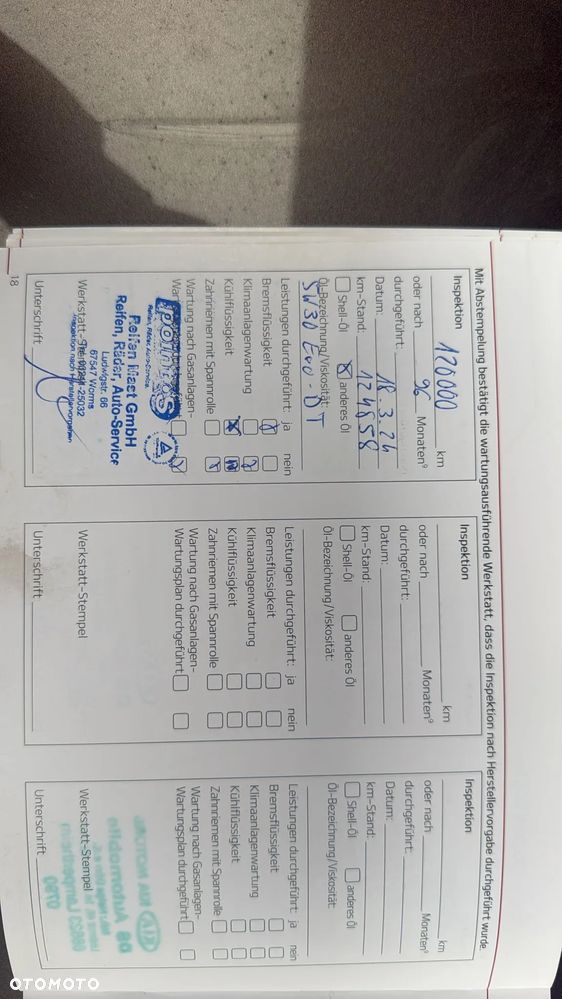 Mit Abstempelung bestätigt die wartungsausführende Werkstatt, dass die Inspektion nach Herstellervorgabe durchgeführt wurde.
Inspektion
120000 km
oder nach 96 Monaten
durchgeführt:
Datum: 18.3.24
km-Stand: 124858
Shell-Öl anderes Öl
Öl-Bezeichnung/Viskosität:
5W30 Evo-DT
Leistungen durchgeführt: ja nein
Bremsflüssigkeit
Klimaanlagenwartung
Kühlflüssigkeit
Zahnriemen mit Spannrolle
Wartung nach Gasanlagen-
point S
Reifen, Räder, Auto-Service
GmbH
Reifen, Räder, Auto-Service
Ludwigstr. 66
67547 Worms
Inspektion nach Herstellervorgaben
Werkstatt-
Unterschrift
18
Inspektion
km
oder nach Monaten
durchgeführt:
Datum:
km-Stand:
Shell-Öl anderes Öl
Öl-Bezeichnung/Viskosität:
Leistungen durchgeführt: ja nein
Bremsflüssigkeit
Klimaanlagenwartung
Kühlflüssigkeit
Zahnriemen mit Spannrolle
Wartung nach Gasanlagen-
Wartungsplan durchgeführt
Werkstatt-Stempel
Unterschrift
Inspektion
km
oder nach Monaten
durchgeführt:
Datum:
km-Stand:
Shell-Öl anderes Öl
Öl-Bezeichnung/Viskosität:
Leistungen durchgeführt: ja nein
Bremsflüssigkeit
Klimaanlagenwartung
Kühlflüssigkeit
Zahnriemen mit Spannrolle
Wartung nach Gasanlagen-
Wartungsplan durchgeführt
Werkstatt-Stempel
Unterschrift
OTOMOTO